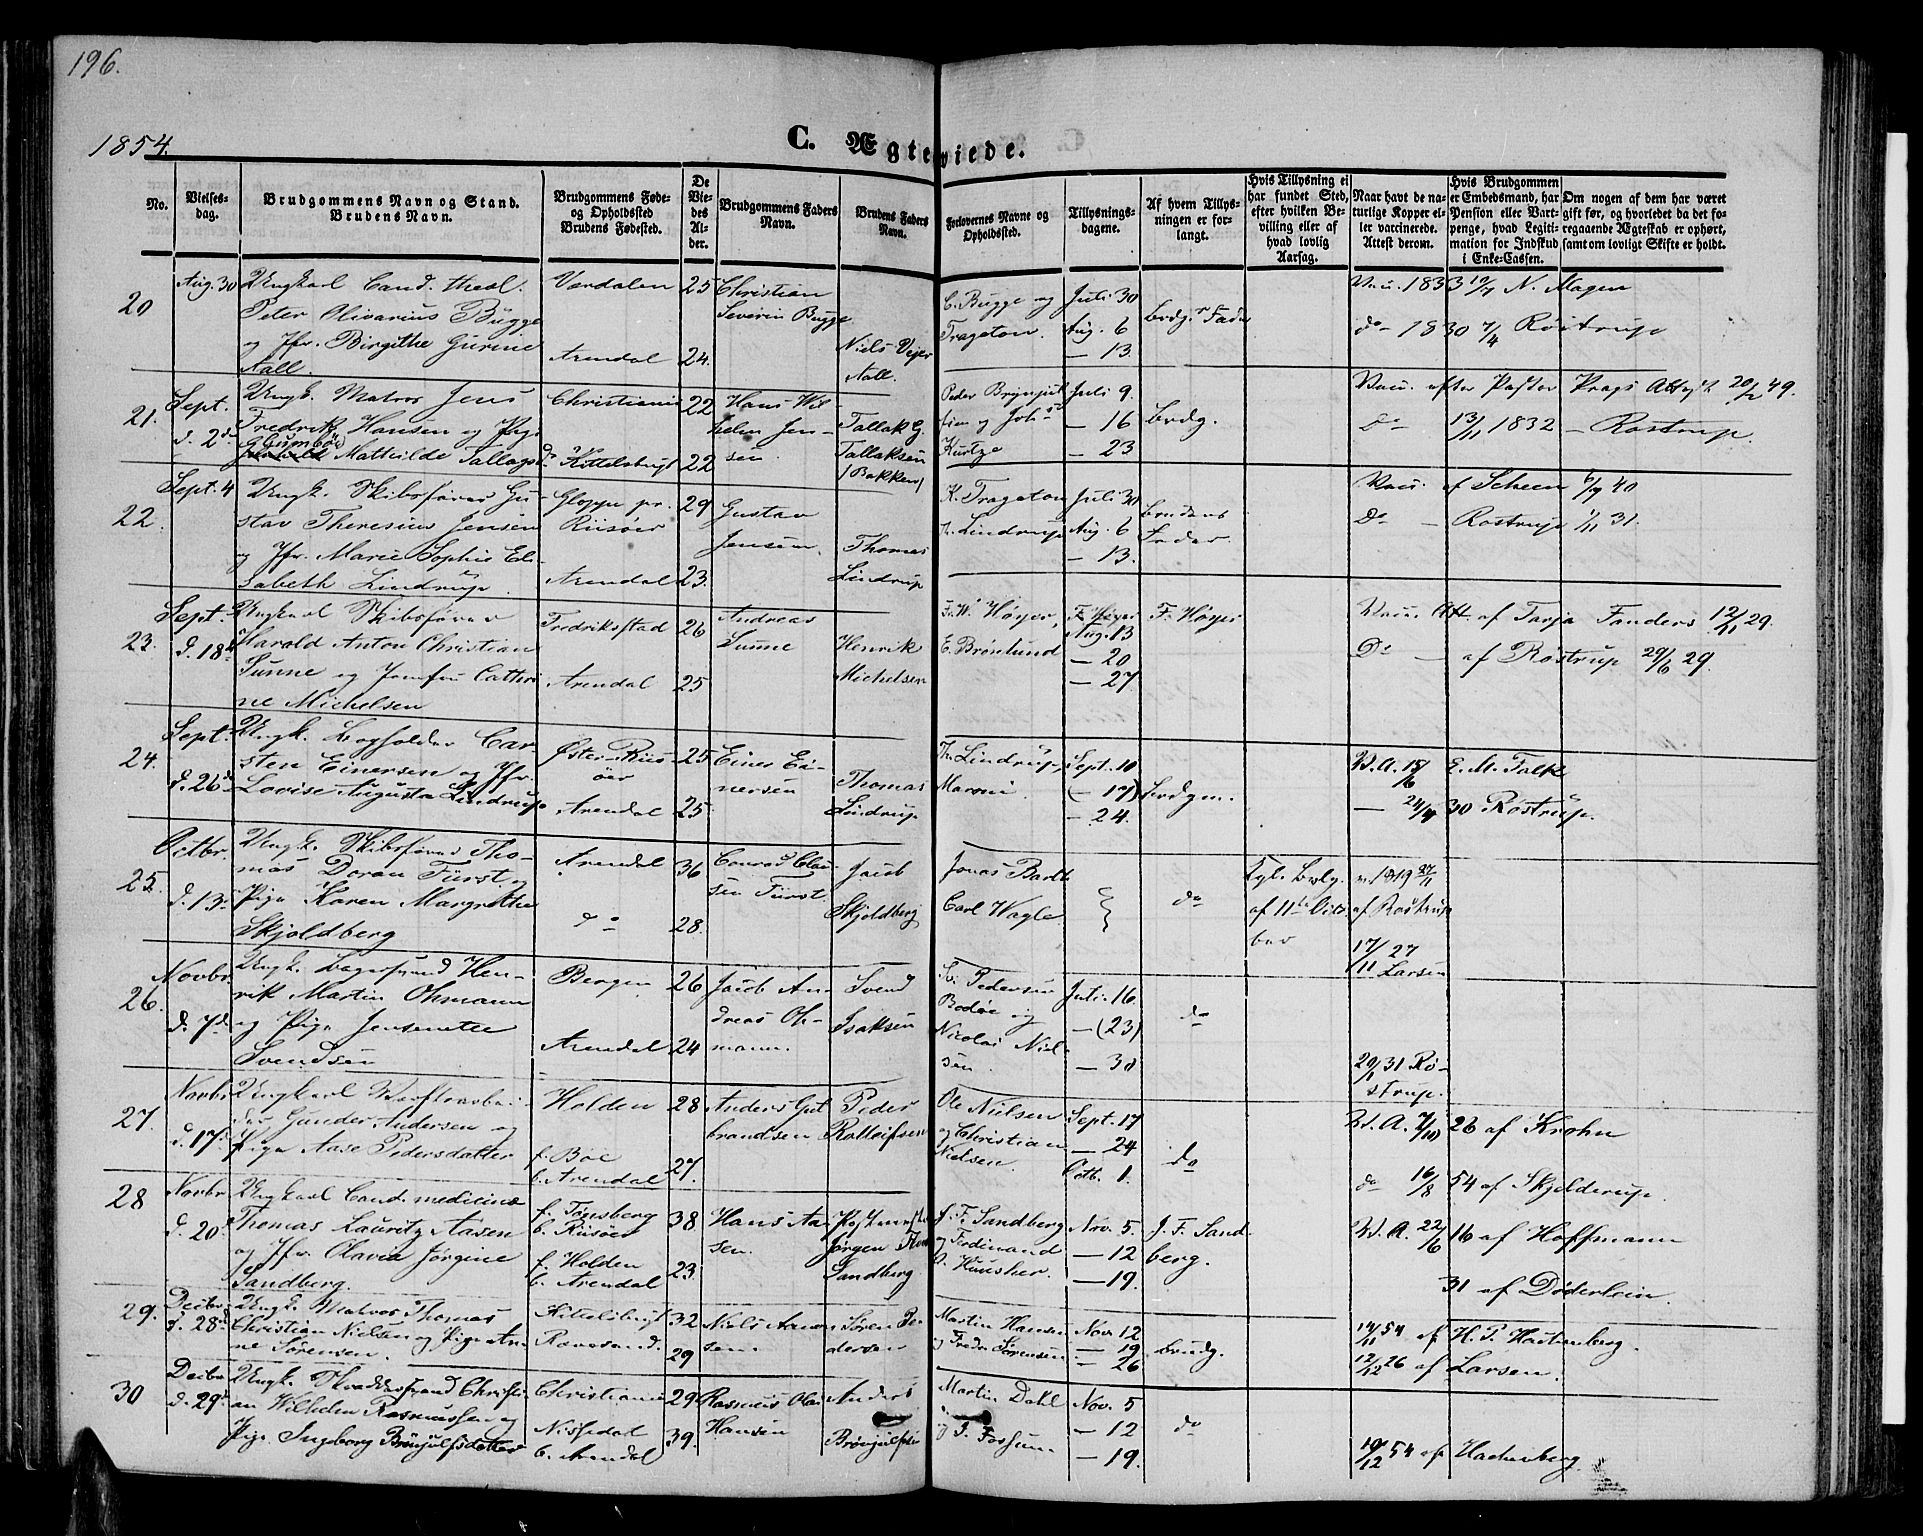 196.
1854.
C. Ægteviede.
No.
Vielses-
dag.
Brudgommens Navn og Stand.
Brudens Navn.
Brudgommens Føde-
og Opholdssted
Brudens Fødested.
De
Vie-
des
Al-
der.
Brudgommens Faders
Navn.
Brudens Faders
Navn.
Forlovernes Navne og
Opholdssted.
Tillysnings-
dagene.
Af hvem Tillys-
ningen er for-
langt.
Hvis Tillysning ei
har fundet Sted,
efter hvilken Be-
villing eller af
hvad lovlig
Aarsag.
Naar havt de na-
turlige Kopper el-
ler vaccinerede.
Attest derom.
Hvis Brudgommen
er Embedsmand, har
Pension eller Vart-
penge, hvad Legiti-
mation for Indskud
i Enke-Cassen.
Om nogen af dem har været
gift før, og hvorledet da det fo-
regaaende Ægteskab er ophørt,
samt om lovligt Skifte er holdt.
20
Aug. 30
Ungkarl Cand. theol.
Peter Olivarius Bügge
og Jfr. Birgithe Gurine
Aall.
Værdalen
Arendal
25
24.
Christian
Severin Bugge
Niels Vejer
Aall.
C. Bugge og
Trageton.
Juli 30
Aug. 6
— 13.
Brdg.s Fader
Vac. 1833 10/7 N. Magen
do 1830 7/4 Røstrup
21.
Sept.
d. 2de
Ungk. Matros Jens
Fredrik Hansen og Pige
Gumbør
Mathilde Tallags
Christiania
Kittelsbugt
22
22
Hans Wil-
helm Jen-
sen.
Tallak G.
Tallaksen
(Bakken)
Peder Brynjul
og Joh.
Kurtze
Juli 9.
— 16
— 23
Brdg.
Vac. efter Pastor Prags Attest 20/2 49.
Do 13/11 1832 — Rostrup.
22.
Sept. 4
Ungk. Skibsfører Gu-
stav Theresius Jensen
og Jfr. Marie Sophie Eli-
sabeth Lindrup.
Gloppe pr.
Riisøer
Arendal
29
23.
Gustav
Jensen.
Thomas
Lindrup
K. Trageton
Th. Lindrup
Juli 30
Aug. 6
— 13.
Brudens
Fader.
Vac. af Scheen 6/9 40
Do — Rostrup 1/11 31.
23.
Sept.
d. 18de
Ungkarl Skibsfører
Harald Anton Christian
Sunne og Jomfru Cathri-
ne Michelsen
Fredriksstad
Arendal
26
25
Andreas
Sunne
Henrik
Michelsen
F. W. Høyer,
E. Brønlund
F. Høyer
Aug. 13
— 20
— 27
F. Høyer
Vac. Att. af Tarja Fanders 12/11 29.
Do — af Rostrup 29/6 29.
24.
Sept.
d. 26de
Ungk. Bogholder Car-
sten Einersen og Jfr.
Lovise Augusta Lindrup
Øster-Riis-
öer
Arendal
25
25.
Einer Ei-
nersen
Thomas
Lindrup
Th. Lindrup,
Maroni.
Sept. 10
(— 17)
— 24.
Brdgm.
V. A. 18/6 E. M. Falk
— 24/4 30 Rostrup.
25.
Octbr.
d. 13de
Ungk. Skibsfører Tho-
mas Doran Fürst og
Pige Karen Margrethe
Skjoldberg
Arendal
do
36
28.
Conrad Clau-
sen Fürst
Jacob
Skjoldberg
Jonas Barth
Carl Wagle
do
Kgl. Bevlg.
af 11te Octo-
ber
v. 1819 27/11
af Rostrup
17/11 27
Larsen
26.
Novbr.
d. 7de
Ungk. Hen-
rik Martin Ohmann
og Pige Jensine
Svendsen
Bergen
Arendal.
26
24
Jacob An-
dreas Oh-
mann.
Svend
Isaksen
Pedersen
Bodøe og
Nicolai Niel-
sen.
Juli. 16
— (23)
— 30
do
20/1 31 Rø-
strup.
27.
Novbr
d. 17de
Ungkarl Værftsarbei-
der Gunder Andersen og
Pige Aase Pedersdatter
Holden
f. Böe
b. Arendal
28
27.
Anders Gul-
brandsen
Peder
Rolleifsen
Ole Nielsen
og Christian
Nielsen.
Sept. 17
— 24
Octb. 1.
do
V. A. 7/10 26 af Krohn
do 16/8 54 af Skjelderup.
28
Novbr
d. 20de
Ungkarl Cand. medicinæ
Thomas Lauritz Aasen
og Jfr. Olavia Jørgine
Sandberg.
f. Tønsberg
b. Riisöer
f. Holden
b. Arendal
38
23.
Hans Aa-
sen.
Postmester
Jørgen
Sandberg
J. F. Sandberg
og Ferdinand
Nov. 5.
— 12
— 19.
J. F. Sand
berg.
V. A. 22/6 16 af Hoffmann
31 af Døderlein.
29.
Decbr.
d. 28de
Ungk. Matros Thomas
Christian Nielsen og Pige An-
ne Sørensen.
Kittelsbugt
Ravesand.
32
29
Niels
sen.
Søren Pe-
dersen
Martin Hansen
og Fredr. Sørensen
Nov. 12
— 19
— 26
Brudg.
14/11 54 af H. P. Hachenberg.
12/12 26 af Larsen.
30
Decbr
d. 29de
Ungk. Skræddersvend Christi-
an Wilhelm Rasmussen og
Pige Ingeborg Brönjulfsdatter
Christiania
Nissedal
b. Arendal
29
39.
Rasmus Olai
Hansen
Anders
Brönjulfsen
Martin Dahl
og T. Fossum.
Nov. 5
— 12
— 19.
do
19/12 54 af Hachenberg.